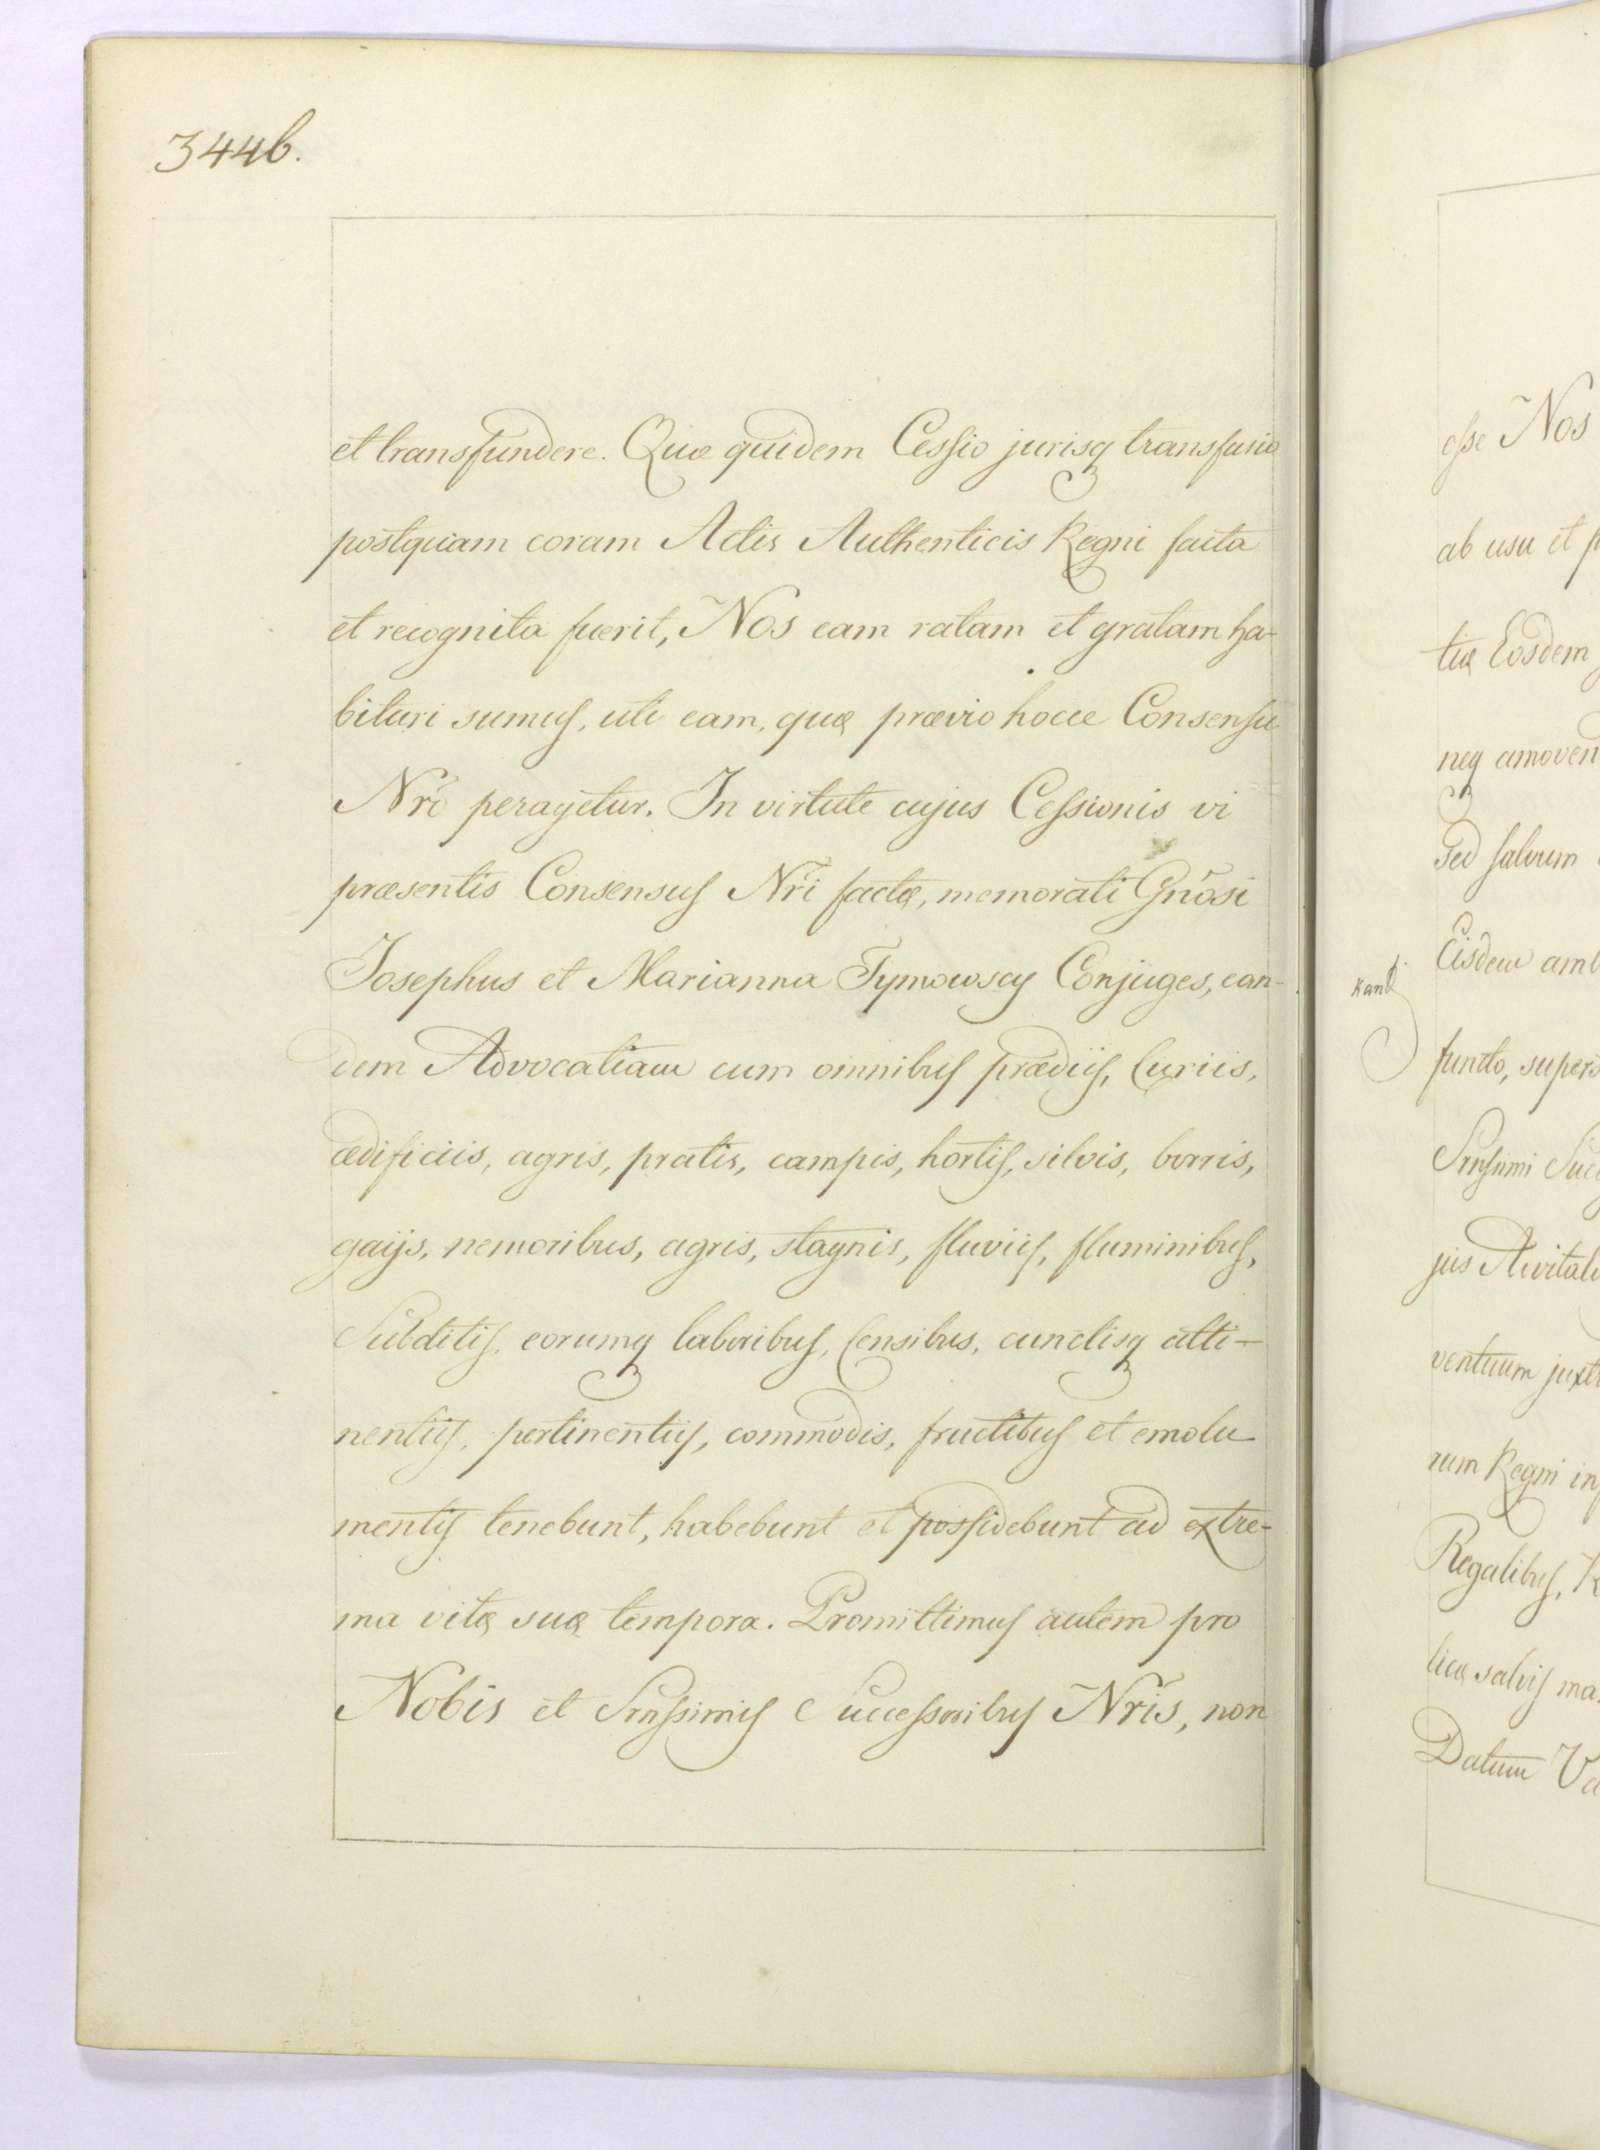 344b.
et transfundere. Quæ quidem Cessio jurisq transfusio
postquam coram Actis Authenticis Regni facta
et recognita fuerit, Nos eam ratam et gratam ha-
bituri sumus, uti eam, quæ prævio hocce Consensu
Nrō peragetur. In virtute cujus Cessionis vi
præsentis Consensus Nri factæ, memorati Gnosi
Josephus et Marianna Tymowscy Conjuges, ean-
dem Advocatiam cum omnibus prædiis, Curiis,
ædificiis, agris, pratis, campis, hortis, silvis, borris,
gaijs, nemoribus, agris, stagnis, fluviis, fluminibus,
Subditis, eorumq laboribus, Censibus, cunctisq atti-
nentiis, pertinentiis, commodis, fructibus et emolu
mentis tenebunt, habebunt et possidebunt ad extre-
ma vitæ suæ tempora. Promittimus autem pro
Nobis et Srnssimis Successoribus Nris, non
esse Nos
ab usu et p
tiæ Eosdem
neq amoven
Sed salvum
Eisdem amb
functo, supers
Srnssimi Suc
jus Avitali
ventuum juxt
rum Regni in
Regalibus, K
licæ salvis ma
Datum Va